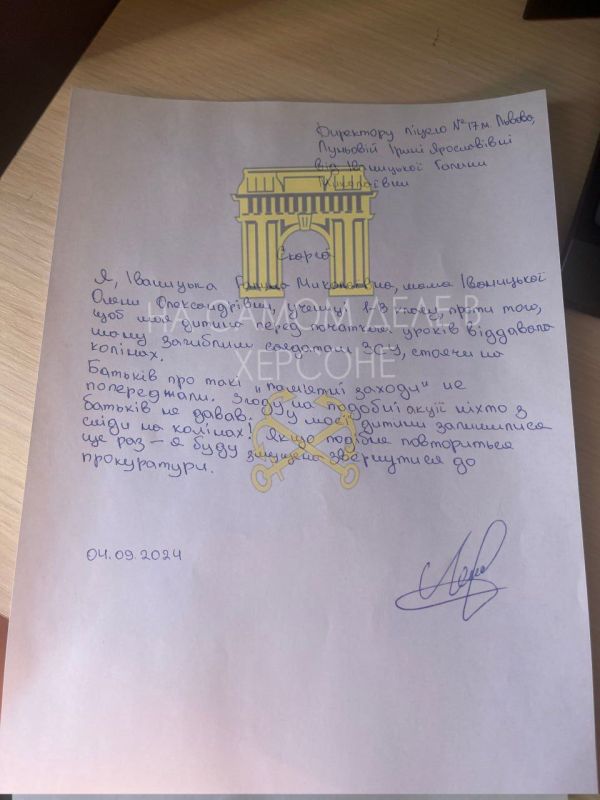 Директору ліцею № 17 м. Львова,
Луньовій Ірині Ярославівні
від Іваницької Галини
Миколаївни
Скарга
Я, Іваницька Галина Миколаївна, мама Іваницької
Олени Олександрівни, учениці 3 класу, проти того,
щоб моя дитина перед початком уроків віддавала
шану загиблим солдатам ЗСУ, стоячи на
колінах.
Батьків про такі "пам'ятні заходи" не
попереджали. Згоду на подобні акції ніхто з
батьків не давав. У моєї дитини залишилися
сліди на колінах! Якщо подібне повториться
ще раз – я буду змушена звернутися до
прокуратури.
04.09.2024
НА САМОМ ДЕЛЕ В
ХЕРСОНЕ